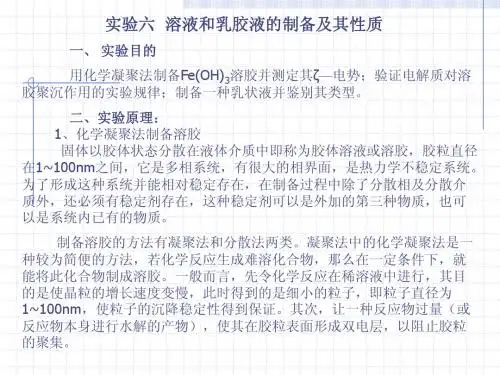 实验六 溶液和乳胶液的制备及其性质
一、 实验目的
用化学凝聚法制备Fe(OH)3溶胶并测定其ζ—电势；验证电解质对溶
胶聚沉作用的实验规律；制备一种乳状液并鉴别其类型。
二、实验原理：
1、化学凝聚法制备溶胶
固体以胶体状态分散在液体介质中即称为胶体溶液或溶胶，胶粒直径
在1~100nm之间，它是多相系统，有很大的相界面，是热力学不稳定系统。
为了形成这种系统并能相对稳定存在，在制备过程中除了分散相及分散介
质外，还必须有稳定剂存在，这种稳定剂可以是外加的第三种物质，也可
以是系统内已有的物质。
制备溶胶的方法有凝聚法和分散法两类。凝聚法中的化学凝聚法是一
种较为简便的方法，若化学反应生成难溶化合物，那么在一定条件下，就
能将此化合物制成溶胶。一般而言，先令化学反应在稀溶液中进行，其目
的是使晶粒的增长速度变慢，此时得到的是细小的粒子，即粒子直径为
1~100nm，使粒子的沉降稳定性得到保证。其次，让一种反应物过量（或
反应物本身进行水解的产物），使其在胶粒表面形成双电层，以阻止胶粒
的聚集。